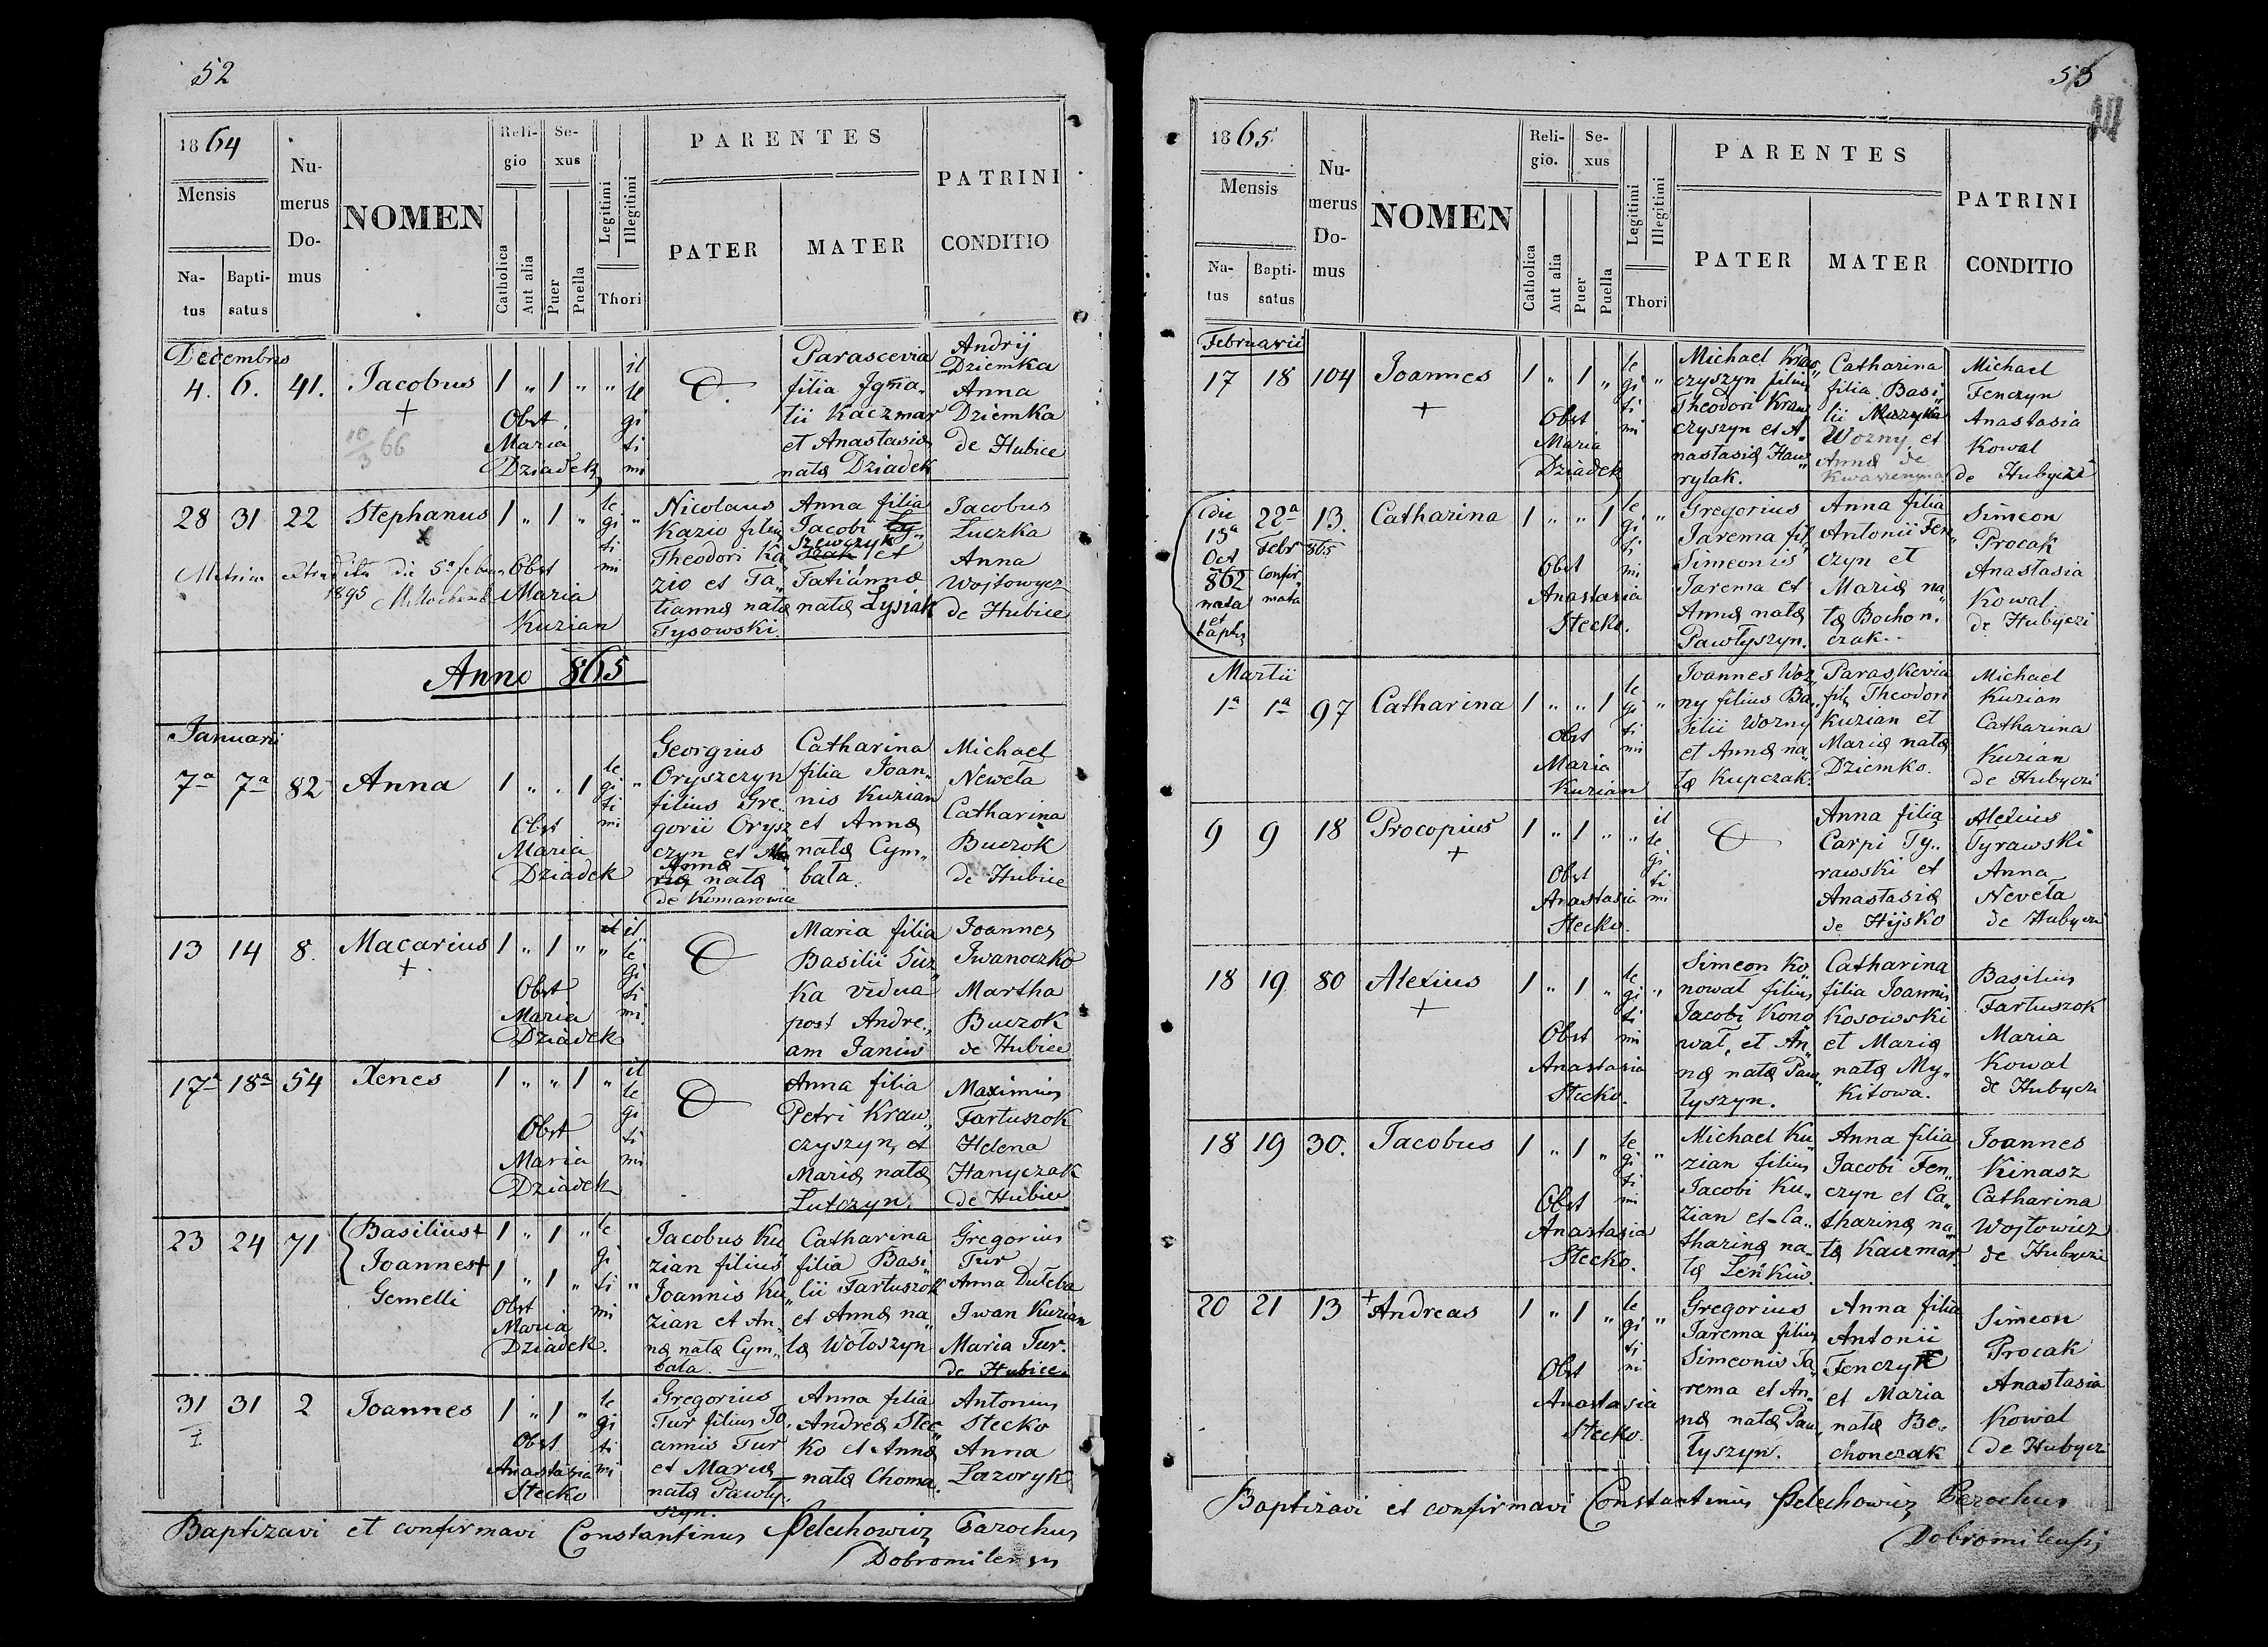 52
1864
Mensis
Na-
tus
Bapti-
satus
Nu-
merus
Do-
mus
NOMEN
Reli-
gio
Catholica
Aut alia
Se-
xus
Puer
Puella
Legitimi
Illegitimi
Thori
PARENTES
PATER
MATER
PATRINI
CONDITIO
Decembris
4. 6. 41. Jacobus 1 „ 1 „ „
il
le
gi
ti
mi
+
10/3 66
Obst.
Maria
Dziadek
Parascevia
filia Jgna„
tii Kaczmar
et Anastasia
nata Dziadek
Andrij
Dziemka
Anna
Dziemka
de Hubice
28 31 22 Stephanus 1 „ 1 „
le
gi „
ti
mi
x
die 5a
1895
Obst
Maria
Kuzian
Nicolaus
Kazio filius
Theodori Ka„
zio et Ta„
tianna nata
Tysowski.
Anna filia
Jacobi
Szewczyk
et
Tatianna
nata Lysiak
Jacobus
Łuczka
Anna
Wojtowycz
de Hubice
Anno 865
Januarii
7a 7a 82 Anna 1 „ „ 1
le
gi „
ti
mi
Obst
Maria
Dziadek
Georgius
Oryszczyn
filius Gre„
gorii Orysz
czyn et
Anna
nata
de Komarowice
Catharina
filia Joan„
nis Kuzian
et Anna
nata Cym„
bała.
Michael
Neweła
Catharina
Buczok
de Hubice
13 14 8. Macarius 1 „ 1 „ „
il
le
gi
ti
mi.
+
Obst
Maria
Dziadek
Maria filia
Basilii
ka vidua
post Andre„
am Janiw
Joannes
Jwanoczko
Martha
Buczok
de Hubice
17a 18a 54 Xenes 1 „ „ 1 „
il
le
gi
ti
mi
Obst
Maria
Dziadek
Anna filia
Petri Kraw„
czyszyn, et
Maria nata
Lutczyn.
Maximius
Tartuszok
Helena
Hanyczak
de Hubice
23 24 71 Basilius + 1 „ 1 „
Joannes + 1 „ 1 „
Gemelli
le
gi
ti „
mi
Obst
Maria
Dziadek.
Jacobus Ku
zian filius
Joannis Ku„
zian et An„
na nata Cym„
bała.
Catharina
filia Basi„
lii Tartuszok
et Anna na„
ta Wołoszyn
Gregorius
Tur
Anna Duleba
Jwan Kuzian
Maria Tur.
de Hubice.
31 31 2 Joannes 1 „ 1 „
I
le
gi
ti
mi
Obst
Anastasia
Stecko
Gregorius
Tur filius Jo„
annis Tur
et Maria
nata Pawły„
szyn.
Anna filia
Andrea Stec„
ko et Anna
nata Choma.
Antonius
Stecko
Anna
Lazoryk
Baptizavi et confirmavi Constantinus Pelechowicz Parochus
Dobromilensis
53
1865.
Mensis
Na-
tus
Bapti-
satus
Nu-
merus
Do-
mus
NOMEN
Reli-
gio.
Catholica
Aut alia
Se-
xus
Puer
Puella
Legitimi
Illegitimi
Thori
PARENTES
PATER
MATER
PATRINI
CONDITIO
Februarii
17 18 104 Joannes 1 „ 1 „
le
gi „
ti
mi
+
Obst
Maria
Dziadek
Michael Kraw„
czyszyn filius
Theodori Kraw
czyszyn et A„
nastasia Haw„
rylak.
Catharina
filia Basi„
lii
Wozny et
Anna de
Michael
Fenczyn
Anastasia
Kowal
de Hubycze
die
13a
Oct
862
nata
et
bapt
22a
Febr 865
Confir
mata
13. Catharina 1 „ „ 1
le
gi „
ti
mi
Obst
Anastasia
Stecko.
Gregorius
Jarema fil
Simeonis
Jarema et
Anna nata
Pawłyszyn.
Anna filia
Antonii Fen„
czyn et
Maria na„
ta Bochon.
czak.
Simeon
Procak
Anastasia
Kowal
de Hubyczi
Martii
1a 1a 97 Catharina 1 „ „ 1
le
gi „
ti
mi
Obst
Maria
Kuzian
Joannes Woz„
ny filius Ba„
silii Wozny
et Anna na„
ta Kupczak.
Paraskevia
fil Theodori
Kuzian et
Maria nata
Dziemko.
Michael
Kuzian
Catharina
Kuzian
de Hubyczi
9 9 18 Procopius 1 „ 1 „ „
il
le
gi
ti
mi
+
Obst
Anastasia
Stecko.
Anna filia
Carpi Ty„
rawski et
Anastasia
de Hijsko
Alexius
Tyrawski
Anna
Neveła
de Hubyczi
18 19 80 Alexius 1 „ 1 „
le
gi „
ti
mi
+
Obst
Anastasia
Stecko.
Simeon Ko„
nował filius
Jacobi Kono
wał, et An„
na nata Paw„
łyszyn.
Catharina
filia Joannis
Kosowski
et Maria
nata My„
kitowa.
Basilius
Tartuszok
Maria
Kowal
de Hubyczi
18 19 30. Jacobus 1 „ 1 „
le
gi „
ti
mi
Obst
Anastasia
Stecko.
Michael Ku„
zian filius
Jacobi Ku„
zian et Ca„
tharina na„
ta Leńkiw.
Anna filia
Jacobi Fen„
czyn et Ca„
tharina na„
ta Kaczmar
Joannes
Kinasz
Catharina
Wojtowicz
de Hubyczi
20 21 13 + Andreas 1 „ 1 „
le
gi „
ti
mi
Obst
Anastasia
Stecko.
Gregorius
Jarema filius
Simeonis Ja„
rema et An„
na nata Paw„
łyszyn.
Anna filia
Antonii
Fenczyk
et Maria
nata Bo„
chonczak
Simeon
Procak
Anastasia
Kowal
de Hubycz
Baptizavi et confirmavi Constantinus Pelechowicz Parochus
Dobromilensis